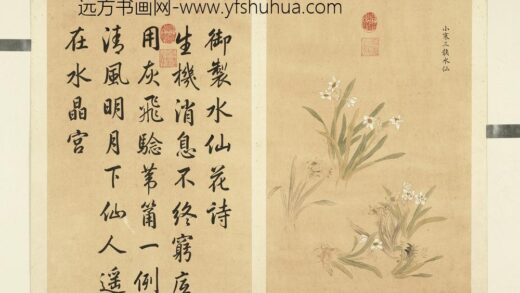 远方书画网-www.yfshuhua.com
小寒三候水仙
御製水仙花詩
生機消息不終窮底
用灰飛驗葦筩一例
清風明月下仙人遥
在水晶宮